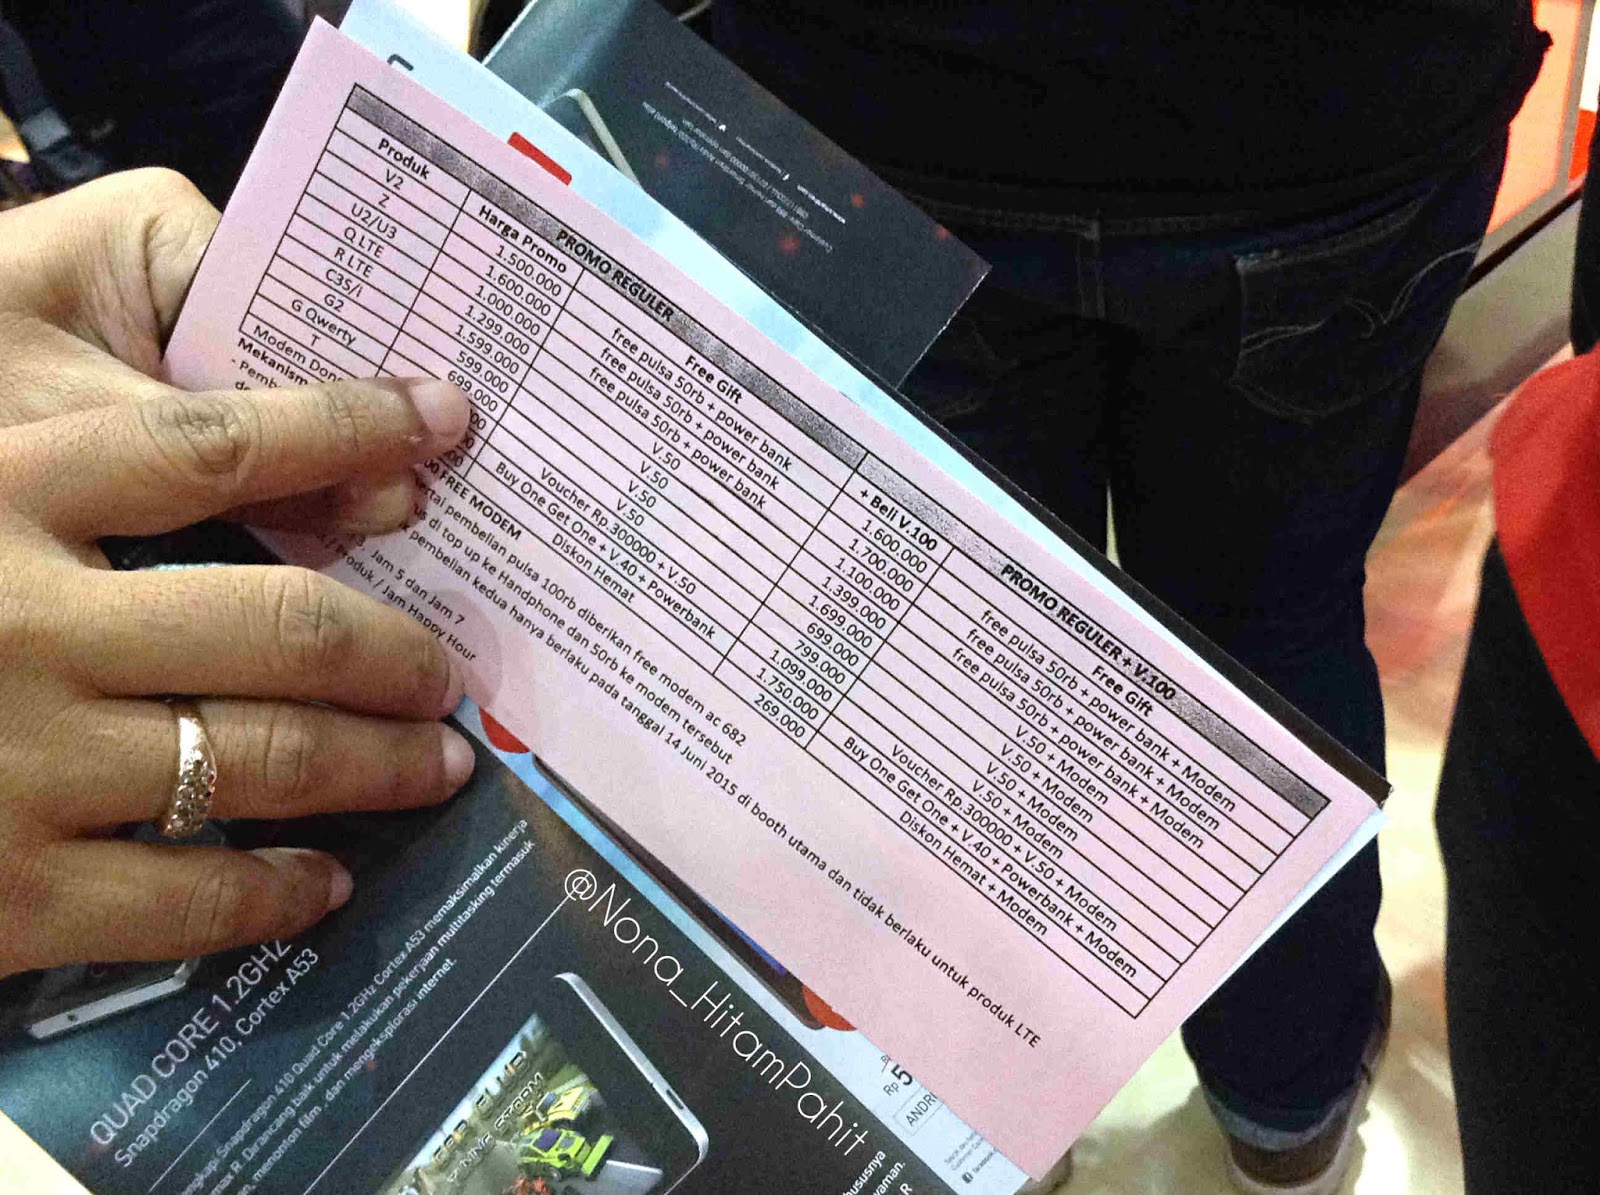 PROMO REGULER
PROMO REGULER + V.100
Produk Harga Promo Free Gift + Beli V.100 Free Gift
V2 1.500.000 free pulsa 50rb + power bank 1.600.000 free pulsa 50rb + power bank + Modem
Z 1.600.000 free pulsa 50rb + power bank 1.700.000 free pulsa 50rb + power bank + Modem
U2/U3 1.000.000 free pulsa 50rb + power bank 1.100.000 free pulsa 50rb + power bank + Modem
Q LTE 1.299.000 V.50 1.399.000 V.50 + Modem
R LTE 1.599.000 V.50 1.699.000 V.50 + Modem
C3S/i 599.000 V.50 699.000 V.50 + Modem
G2 699.000 V.50 799.000 V.50 + Modem
G Qwerty Voucher Rp.300000 + V.50 1.099.000 Voucher Rp.300000 + V.50 + Modem
T Buy One Get One + V.40 + Powerbank 1.750.000 Buy One Get One + V.40 + Powerbank + Modem
Modem Diskon Hemat 269.000 Diskon Hemat + Modem
FREE MODEM
pembelian pulsa 100rb diberikan free modem ac 682
di top up ke Handphone dan 50rb ke modem tersebut
pembelian kedua hanya berlaku pada tanggal 14 Juni 2015 di booth utama dan tidak berlaku untuk produk LTE
Jam 5 dan Jam 7
/ Jam Happy Hour
QUAD CORE 1.2GHZ
Snapdragon 410, Cortex A53
Snapdragon 410 Quad Core 1.2GHz Cortex A53 memaksimalkan kinerja
R. Dirancang baik untuk melakukan pekerjaan multitasking termasuk
menonton film, dan mengeksplorasi internet.
@Nona_HitamPahit
Rp 5